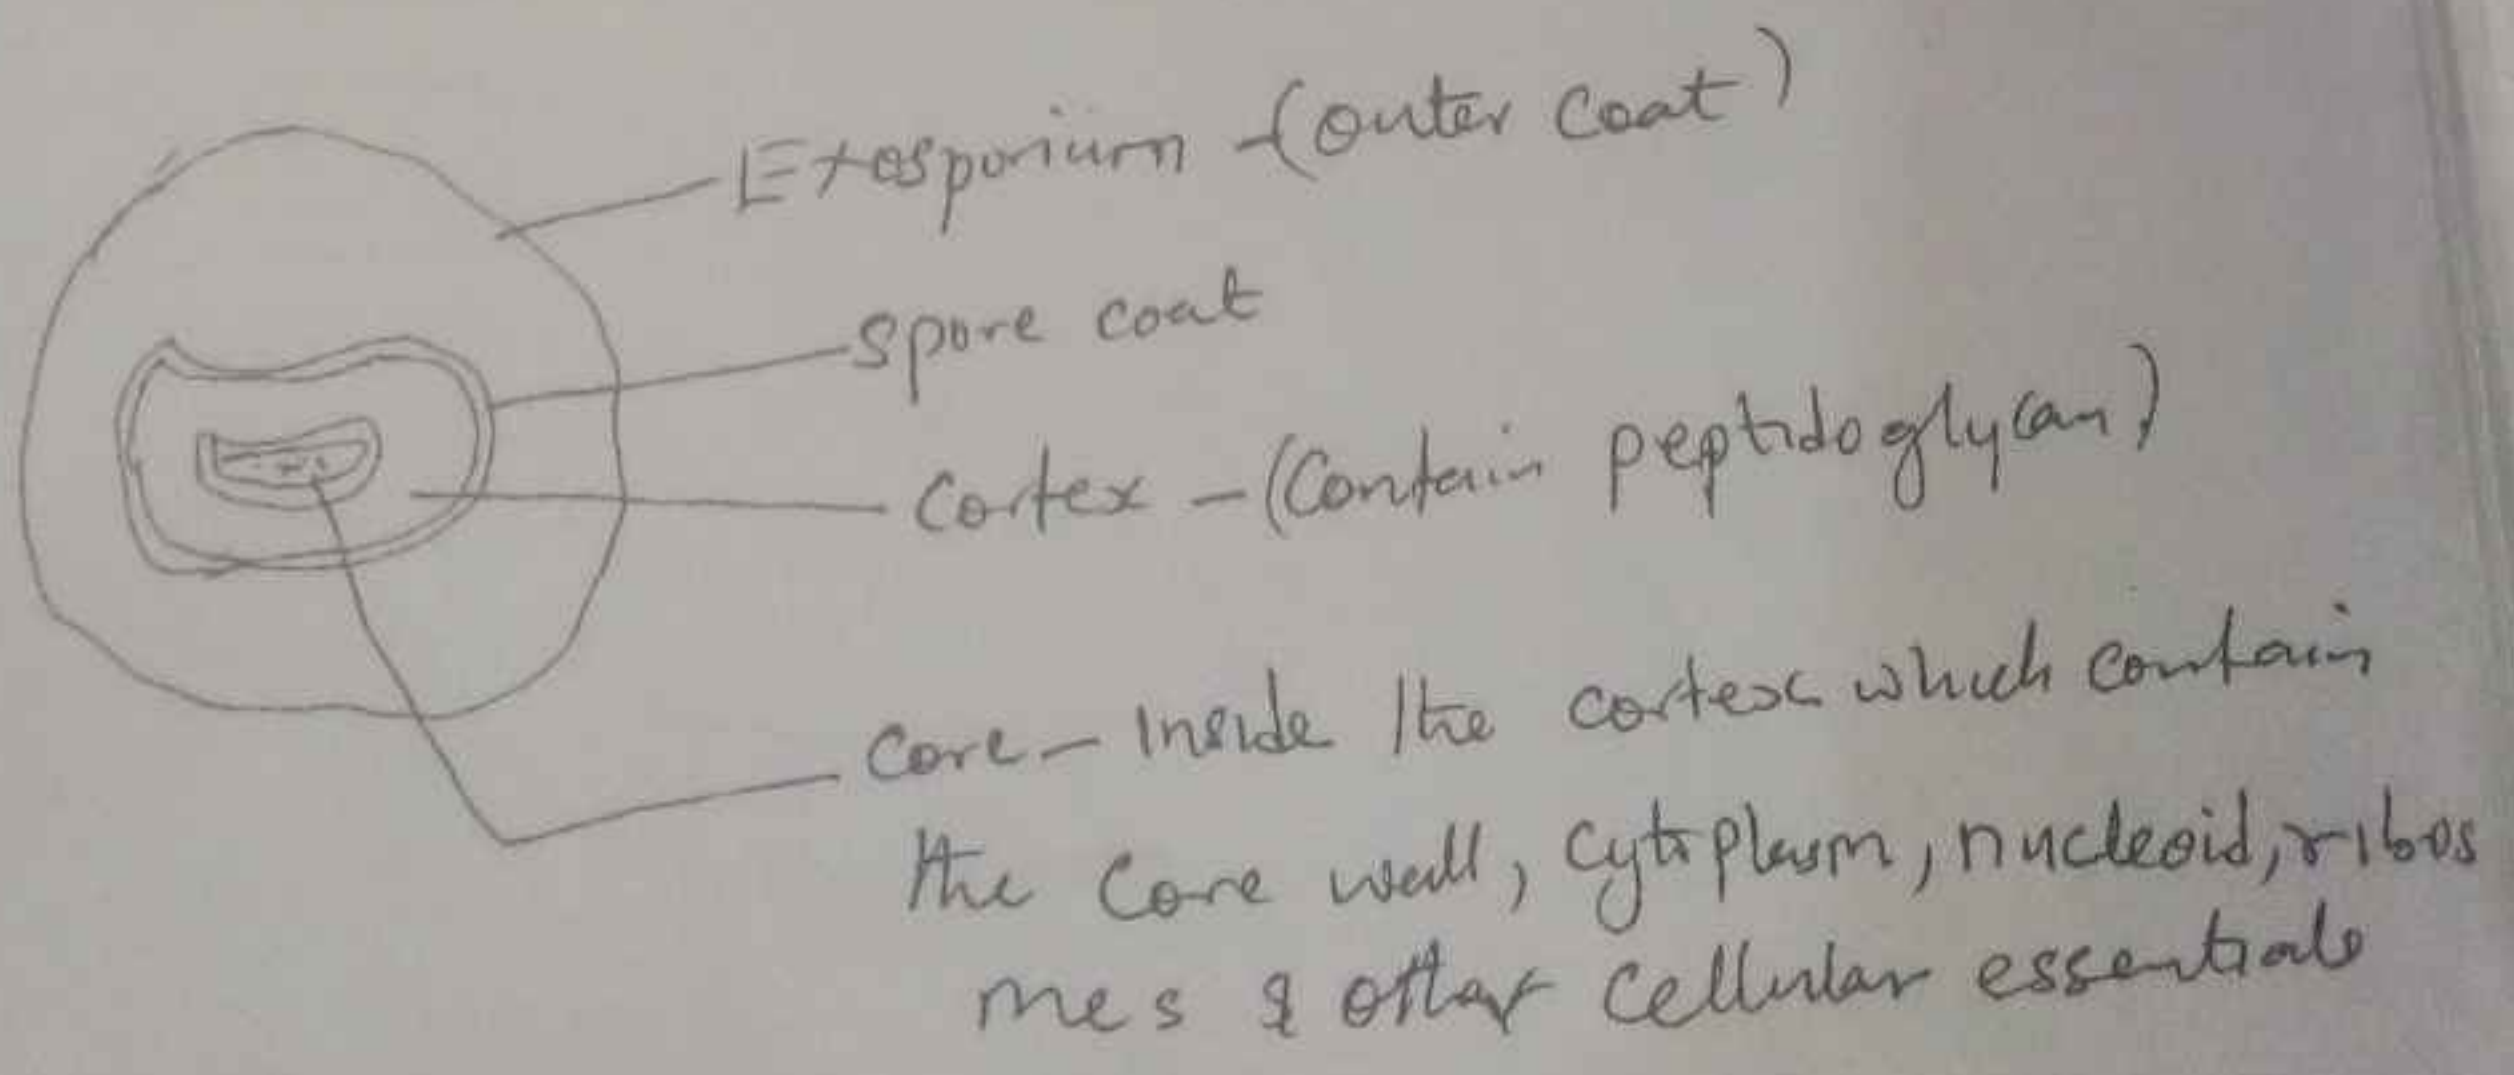 Exosporium - (outer coat)
Spore coat
Cortex - (Contain peptidoglycan)
Core - Inside the cortex which contain
the Core wall, Cytoplasm, nucleoid, ribos
mes & other Cellular essentials